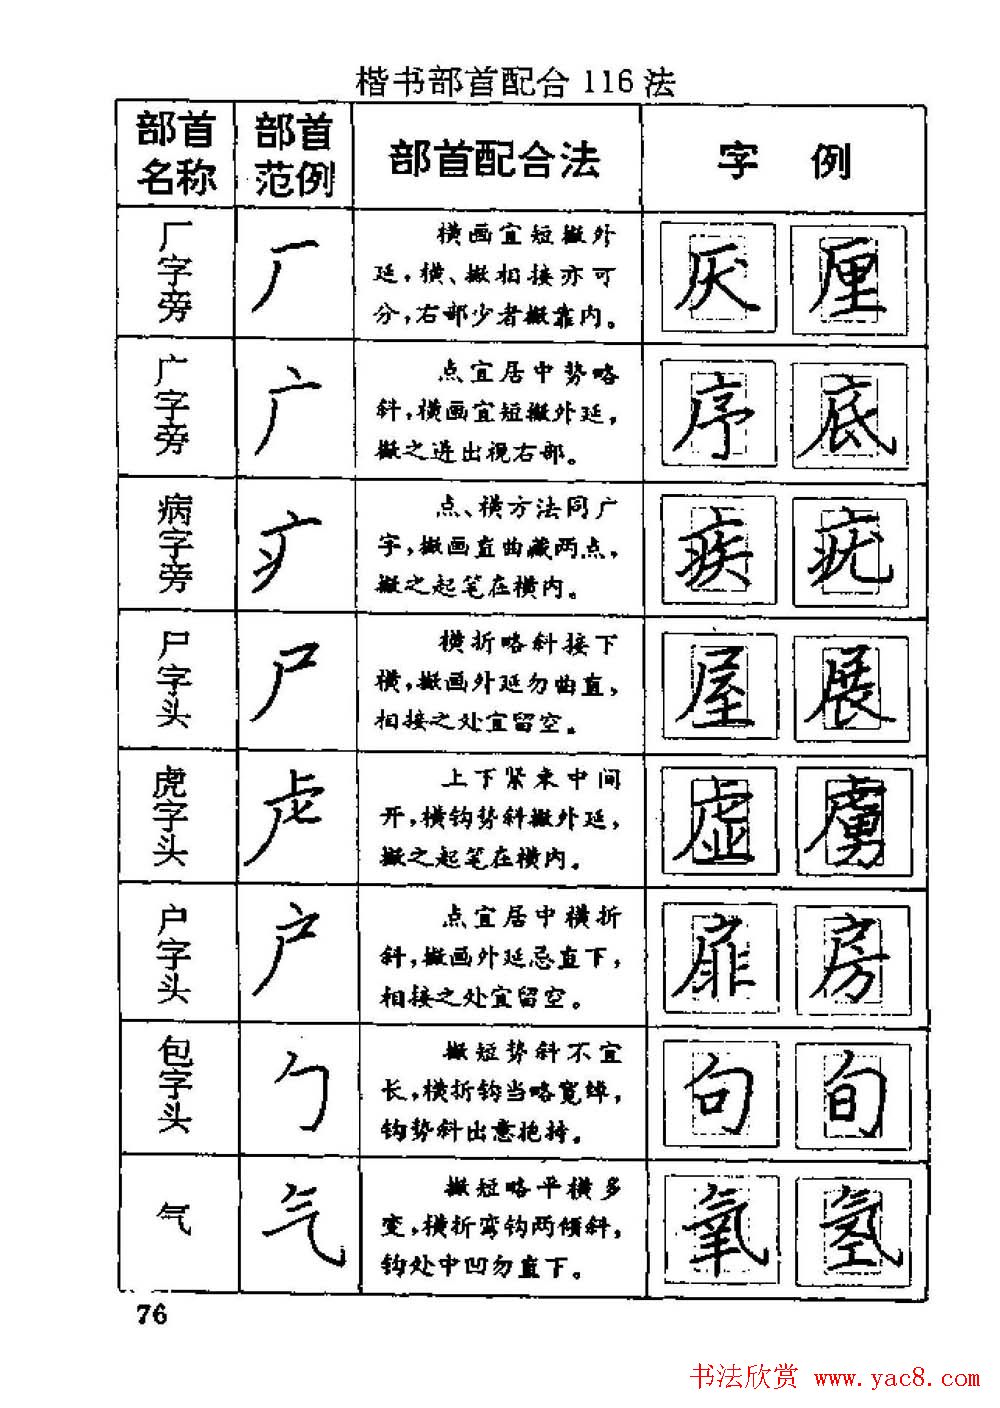 楷书部首配合116法
部首名称
部首范例
部首配合法
字 例
厂字旁
厂
横画宜短撇外
延，横、撇相接亦可
分，右部少者撇靠内。
厌 厘
广字旁
广
点宜居中势略
斜，横画宜短撇外延，
撇之进出视右部。
序 底
病字旁
疒
点、横方法同广
字，撇画直曲藏两点，
撇之起笔在横内。
疾 疣
尸字头
尸
横折略斜接下
横，撇画外延勿曲直，
相接之处宜留空。
屋 展
虎字头
虍
上下紧束中间
开，横钩势斜撇外延，
撇之起笔在横内。
虚 虏
户字头
户
点宜居中横折
斜，撇画外延忌直下，
相接之处宜留空。
扉 房
包字头
勹
撇短势斜不宜
长，横折钩当略宽绰，
钩势斜出意抱持。
句 旬
气
气
撇短略平横多
变，横折弯钩两倾斜，
钩处中凹勿直下。
氧 氢
76
书法欣赏 www.yac8.com